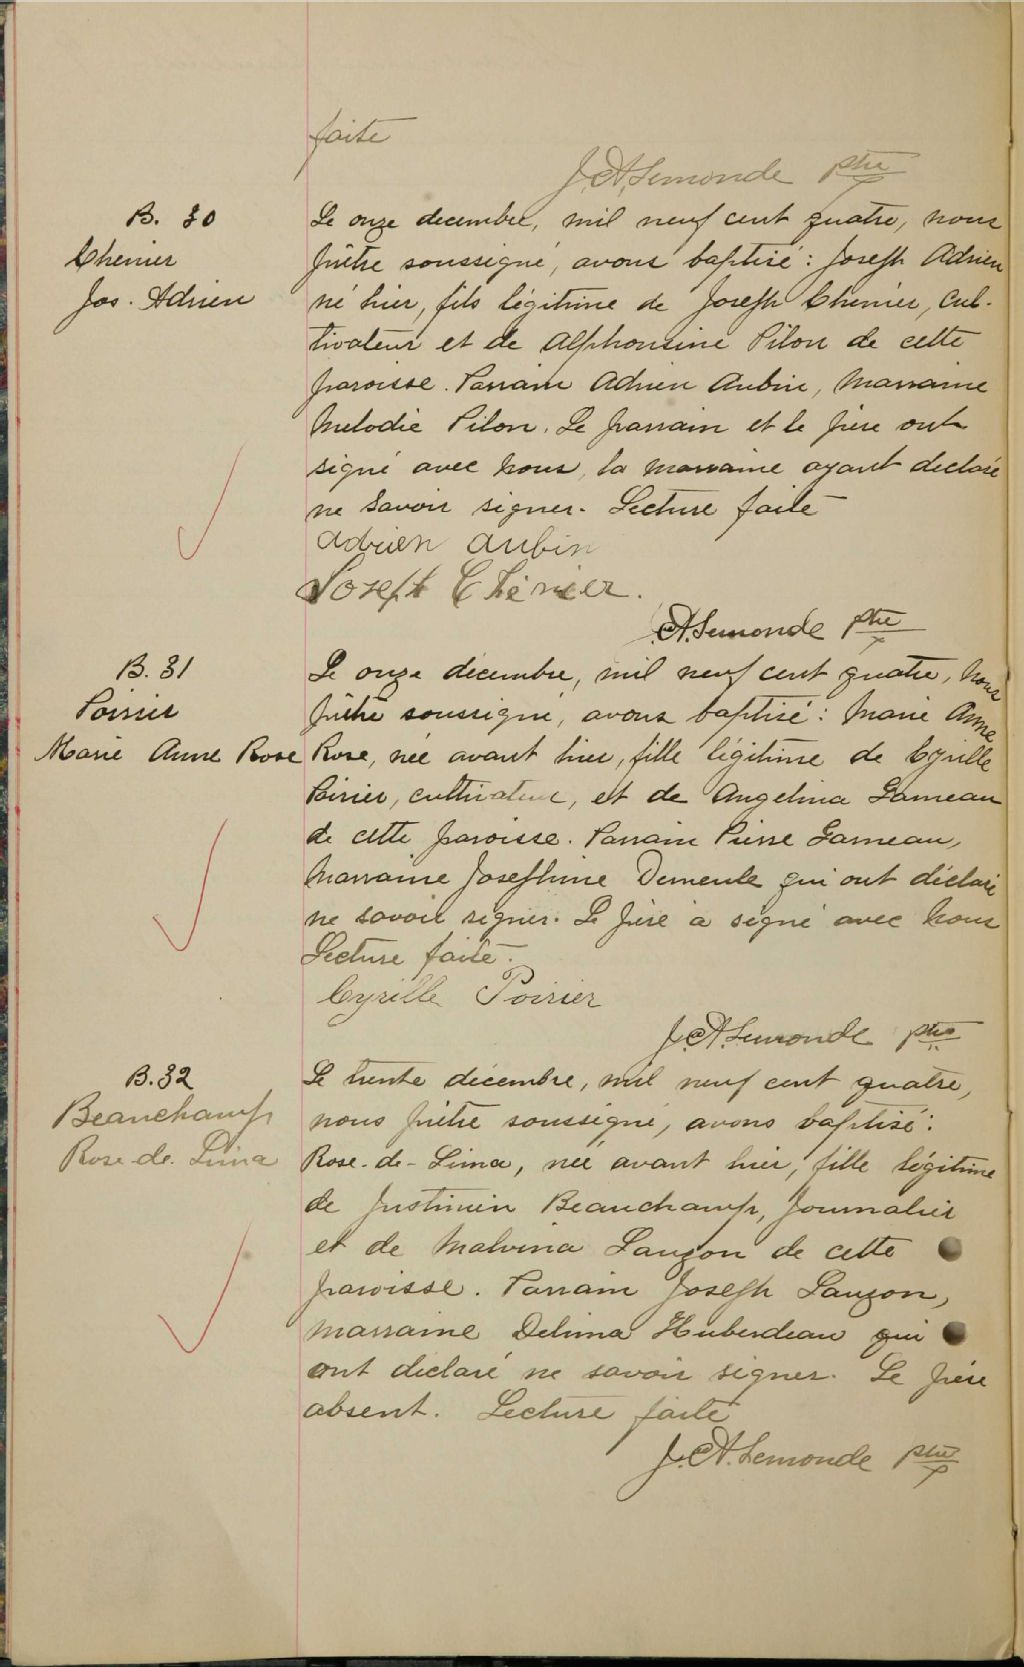 faite
J. A. Lemonde ptre
B. 30
Le onze decembre, mil neuf cent quatre, nous
Chenier
prêtre soussigné, avons baptisé : Joseph Adrien
Jos. Adrien
né hier, fils légitime de Joseph Chenier, cul-
tivateur et de Alphonsine Pilon de cette
paroisse. Parrain Adrien Aubin, Marraine
Melodie Pilon. Le parrain et le père ont
signé avec nous, la marraine ayant declaré
ne savoir signer. Lecture faite
Adrien Aubin
Joseph Chénier.
J. A. Lemonde ptre
B. 31
Le onze décembre, mil neuf cent quatre, nous
Poirier
prêtre soussigné, avons baptisé : Marie Anne
Marie Anne Rose
Rose, née avant hier, fille légitime de Cyrille
Poirier, cultivateur, et de Angelina Garneau
de cette paroisse. Parrain Pierre Garneau,
Marraine Josephine Demeule qui ont déclaré
ne savoir signer. Le père a signé avec nous
Lecture faite.
Cyrille Poirier
J. A. Lemonde ptre
B. 32
Le trente décembre, mil neuf cent quatre,
Beauchamp
nous prêtre soussigné, avons baptisé :
Rose de Lima
Rose-de-Lima, née avant hier, fille légitime
de Justinien Beauchamp, Journalier
et de Malvina Lauzon de cette
paroisse. Parrain Joseph Lauzon,
marraine Delima Huberdeau qui
ont déclaré ne savoir signer. Le père
absent. Lecture faite
J. A. Lemonde ptre